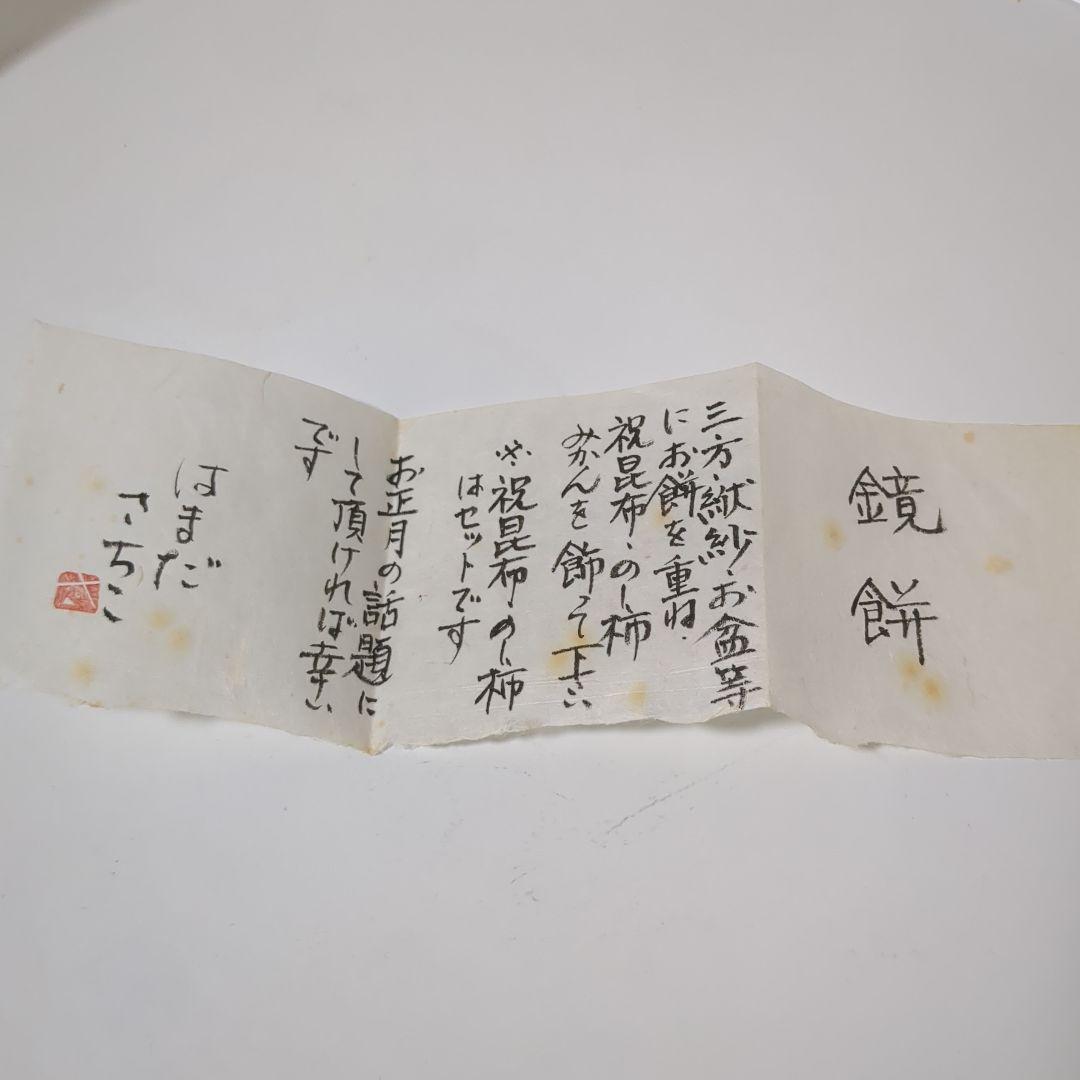 鏡餅
三方・袱紗・お盆等
にお餅を重ね・
祝昆布・のし柿
みかんを飾って下さい
※祝昆布・のし柿
はセットです
お正月の話題に
して頂ければ幸い
です
はまだ
さちこ